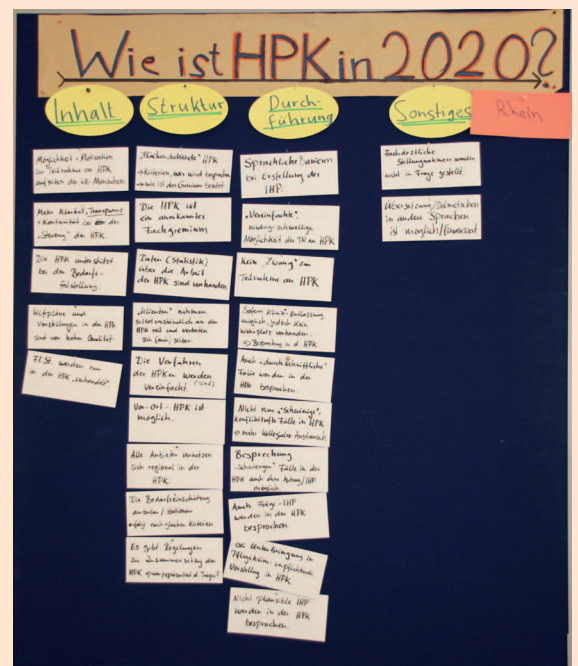 Wie ist HPK in 2020?
Inhalt
Möglichkeit + Motivation
zur Teilnahme an HPK
auf seiten der LB-Menschen.
Mehr Klarheit, Transparenz
+ Kontinuität bei
"Steuerung" der HPK.
Die HPK unterstützt
bei der Bedarfs-
feststellung.
Hilfepläne und
Vorstellungen in der HPK
sind von hoher Qualität
FLSt werden nur
in der HPK "verhandelt".
Struktur
"Flächendeckende" HPK
→ Kriterien, was wird besprochen
→ wie ist das Gremium besetzt
Die HPK ist
ein anerkanntes
Fachgremium
Daten (Statistik)
über die Arbeit
der HPK sind vorhanden
"Klienten" nehmen
selbstverständlich an der
HPK teil und vertreten
sich (auch) selber.
Die Verfahren
der HPKen werden
vereinfacht. (und)
Vor-Ort-HPK ist
möglich.
Alle Anbieter vernetzen
sich regional in der
HPK.
Die Bedarfseinschätzung
ambulan/stationär
erfolgt nach gleichen Kriterien.
Es gibt Regelungen
zur Zusammensetzung der
HPK
Durch-
führung
Sprachliche Barrieren
bei Erstellung des
IHP.
"Vereinfachte",
niedrig-schwellige
Möglichkeit der TN an HPK
Kein "Zwang" zur
Teilnahme an HPK
Sofern Klinik-Entlassung
möglich, jedoch kein
Wohnplatz vorhanden.
=> Besprechung in d. HPK
Auch "durchschnittliche"
Fälle werden in der
HPK besprochen.
Nicht nur "schwierige",
konflikthafte Fälle in HPK
→ mehr kollegialer Austausch
Besprechung
"schwieriger" Fälle in der
HPK auch ohne Antrag/IHP
möglich
Auch Folge-IHP
werden in der HPK
besprochen
Bei Unterbringung in
Pflegeheim verpflichtende
Vorstellung in HPK.
Nicht plausible IHP
werden in der HPK
besprochen.
Sonstiges
Fachärztliche
Stellungnahmen werden
nicht in Frage gestellt.
Übersetzung/Dolmetschen
in andere Sprachen
ist möglich/finanziert.
Rhein